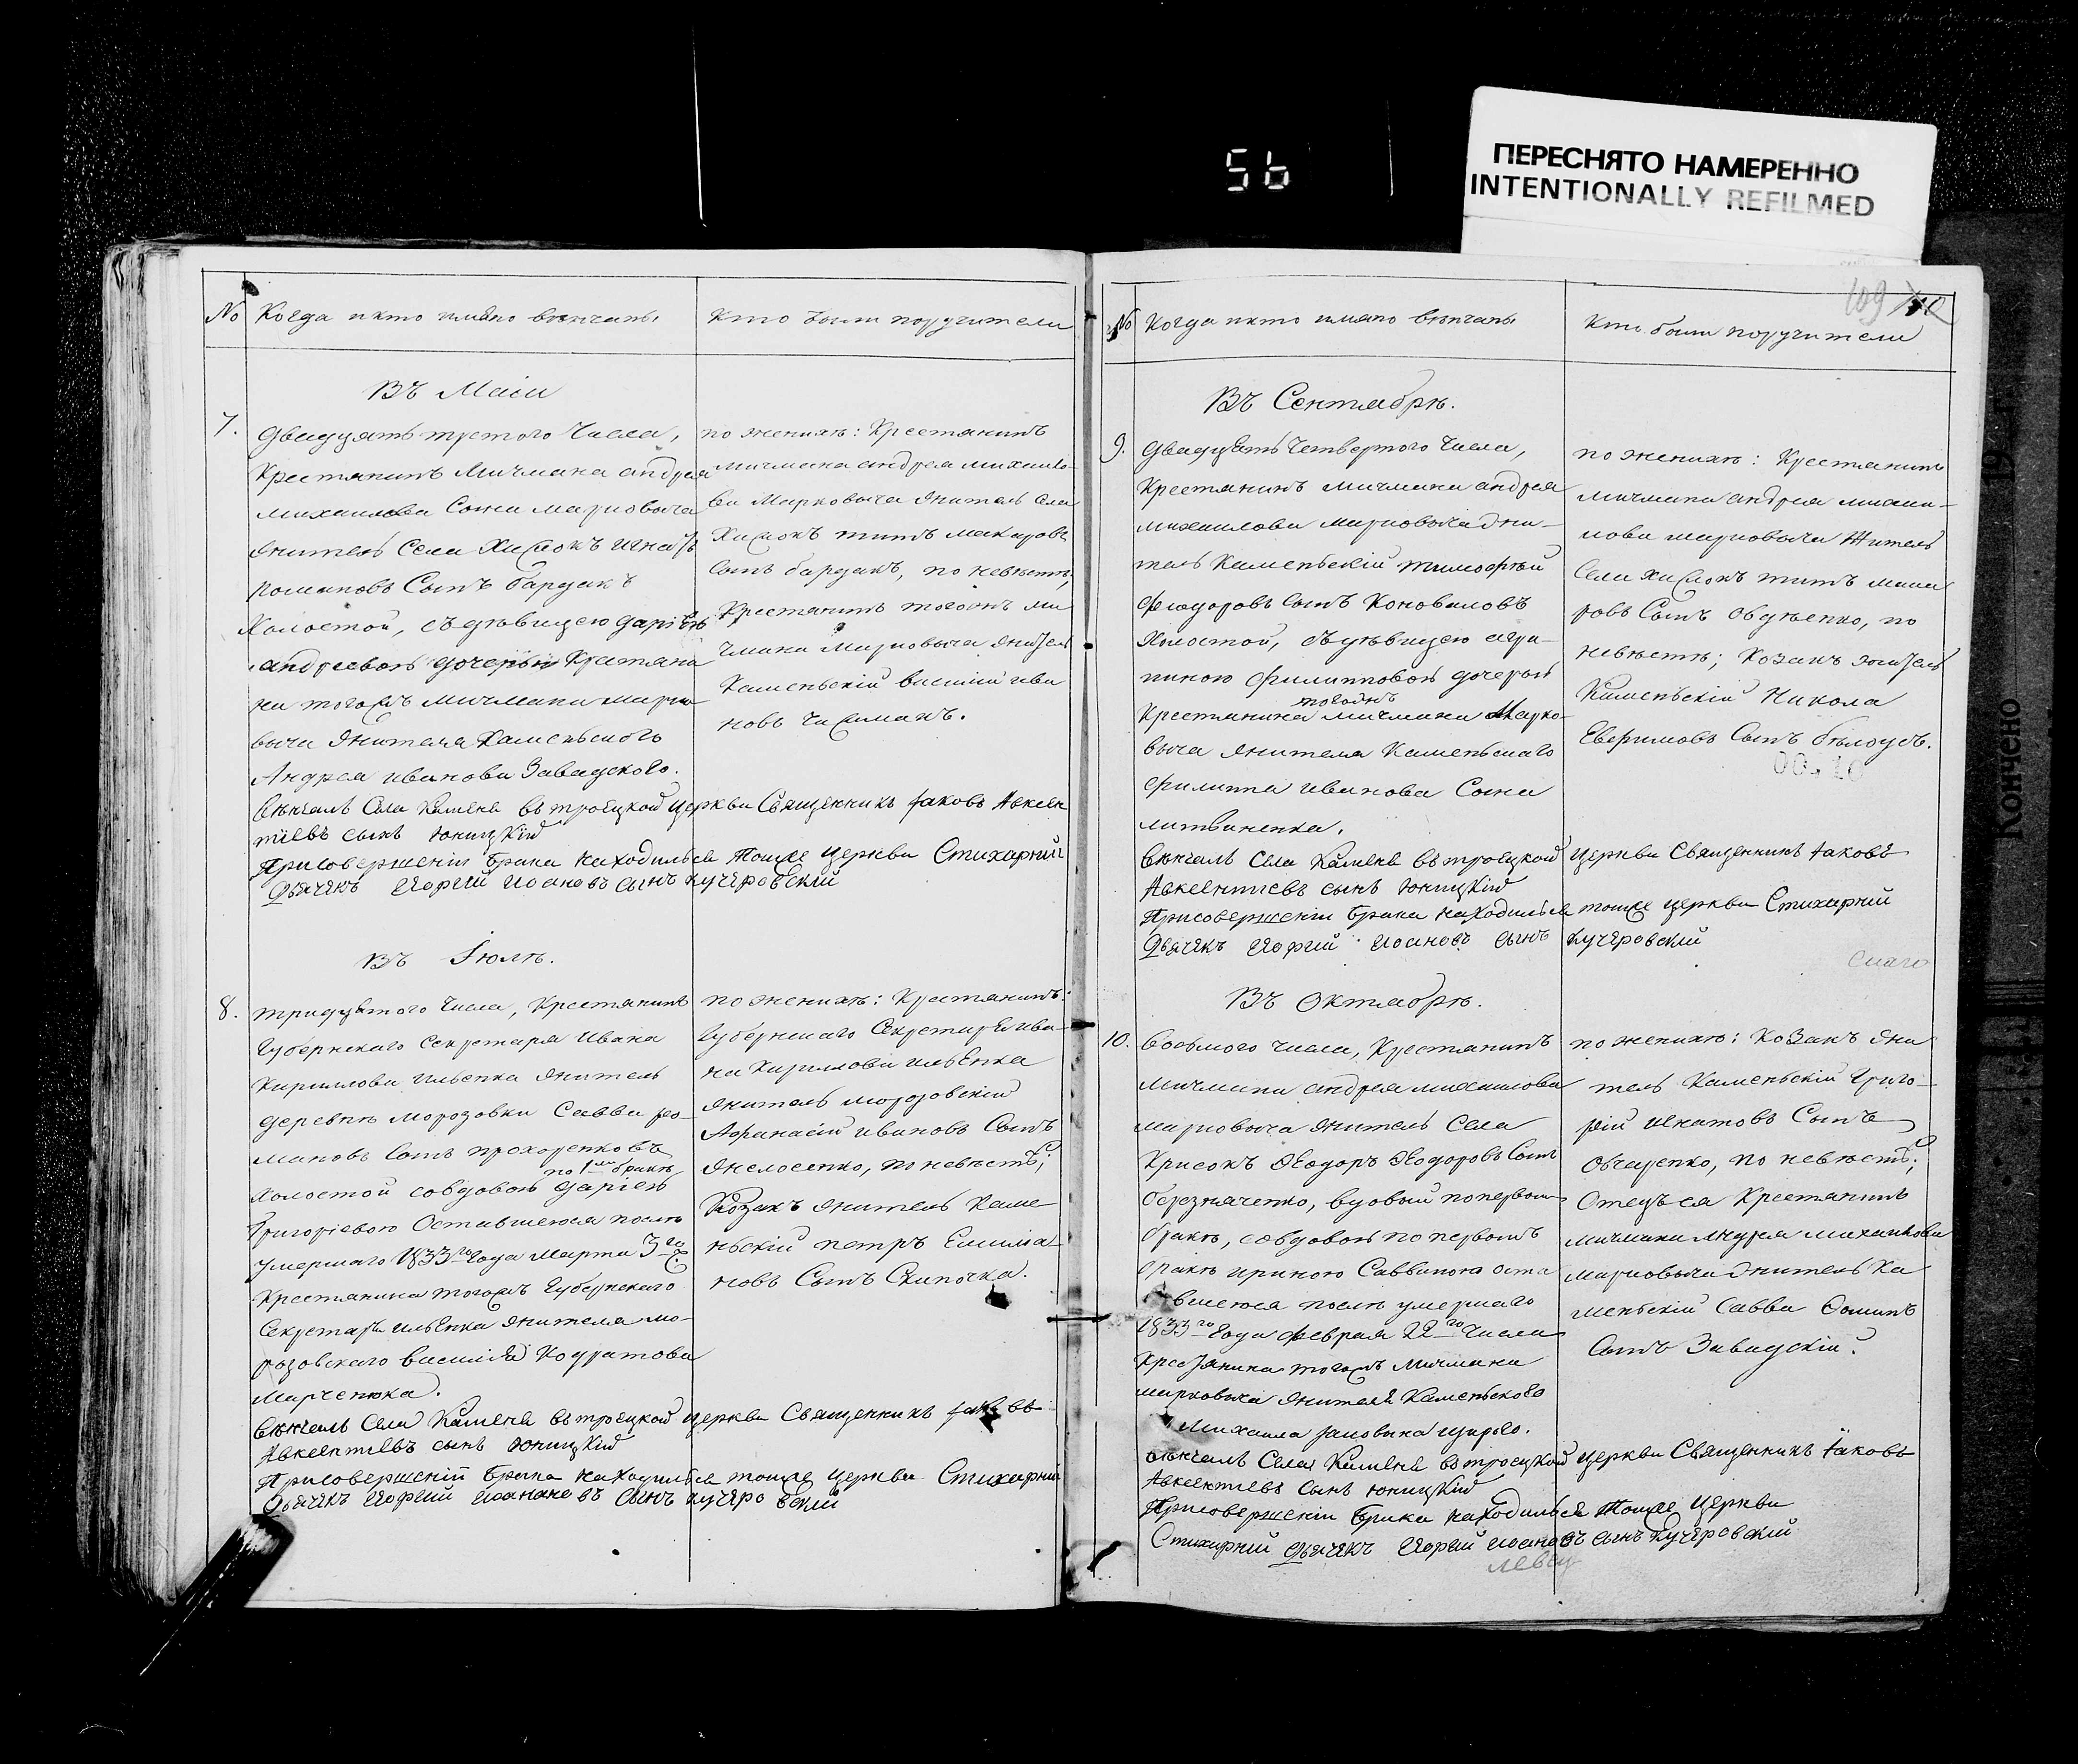 56
ПЕРЕСНЯТО НАМЕРЕННО
INTENTIONALLY REFILMED
109
№
Когда и кто имяно венчаны
Кто были поручители
Въ Маіи
7.
Двадцять третого числа,
Крестянинъ Мичмана андрея
михаилова сына марковыча
житель села
романовъ Сынъ бардакъ
Холостой, съ девицею даріею
андреевою дочерью Крестяни
на тогожъ мичмана марко
выча жителя Каменьского
Андрея иванова Завадского.
по женихе: Крестянинъ
мичмана андрея михаило
ва Марковыча житель села
титъ макаровъ
сынъ бардакъ, по невесте,
Крестянинъ тогожъ ми
чмана Марковыча житель
Каменьскій василій ива
новъ
Венчалъ Села Каменя въ троецкой церкви Священникъ Іаковъ Авксен
тіевъ сынъ Юницкій
При совершеніи брака находился тоиже церкви Стихарній
Дьячекъ Георгій Иоановъ сынъ кучеровскій
Въ Іюле.
8.
тридцятого числа, Крестянинъ
Губернскаго Секретаря Ивана
Кирилова ильенка житель
деревне морозовки Савва ро
мановъ сынъ прохоренковъ
по 1му браке
холостой со вдовою даріею
Григоріевою Оставшеюся после
умершаго 1833го года Марта 3го
Крестянина тогожъ Губернскаго
Секретаря ильенка жителя мо-
розовского василія Кодратова
Марченюка.
по женихе: Крестянинъ
Губернскаго Секретаря ива-
на Кирилова ильенка
житель морозовскій
Афанасій ивановъ Сынъ
по невесте;
Козакъ житель Каме
ньскій петръ Емилиа
новъ Сынъ Скипочка.
Венчалъ Села Каменя въ троецкой церкви Священникъ Іаковъ
Авксентіевъ сынъ Юницкій
При совершеніи брака находился тоиже церкви Стихарній
Дьячекъ Георгій сынъ кучеровскій
№
Когда и кто имяно венчаны
Кто были поручители
Въ Сентябре.
9.
Двадцять четвертого числа,
Крестянинъ мичмана андрея
михаилова марковыча жи-
тель Каменьскій тимофей
феодоровъ сынъ Коноваловъ
Холостой, съ девицею агри-
пиною филипповою дочерью
тогожъ
Крестянина мичмана Марко-
выча жителя Каменьскаго
филиппа иванова Сына
литвиненка.
по женихе: Крестянинъ
мичмана андрея михаи-
лова марковыча Житель
Села титъ мака
ровъ Сынъ Обценко, по
невесте; Козакъ житель
Каменьскій Никола
Евфимовъ Сынъ белоусъ.
Венчалъ села Каменя въ троецкой церкви Священникъ Іаковъ
Авксентіевъ сынъ Юницкій
При совершеніи брака находился тоиже церкви Стихарній
Дьячекъ Георгій Иоановъ сынъ кучеровскій
Въ Октябре.
10.
Восьмого числа, Крестянинъ
мичмана андрея михаилова
марковыча житель Села
Крисокъ Феодоръ Феодоровъ Сынъ
березначенко, вдовый по первомъ
браке, со вдовою по первомъ
браке ириною Саввиною оста
вшеюся после умершаго
1833го года февраля 22го числа
Крестянина тогожъ Мичмана
марковыча жителя Каменьского
Михаила
по женихе: Козакъ жи
тель Каменьскій Григо-
рій игнатовъ Сынъ
Овчаренко, по невесте;
Отецъ ея Крестянинъ
мичмана Андрея михаилова
марковыча житель Ка
меньскій Савва Фоминъ
Сынъ Завадскій.
Венчалъ Села Каменя въ троецкой церкви Священникъ Іаковъ
Авксентіевъ Сынъ Юницкій
При совершеніи брака находился тоиже церкви
Стихарній Дьячекъ Георгій Иоановъ сынъ Кучеровскій
Кончено